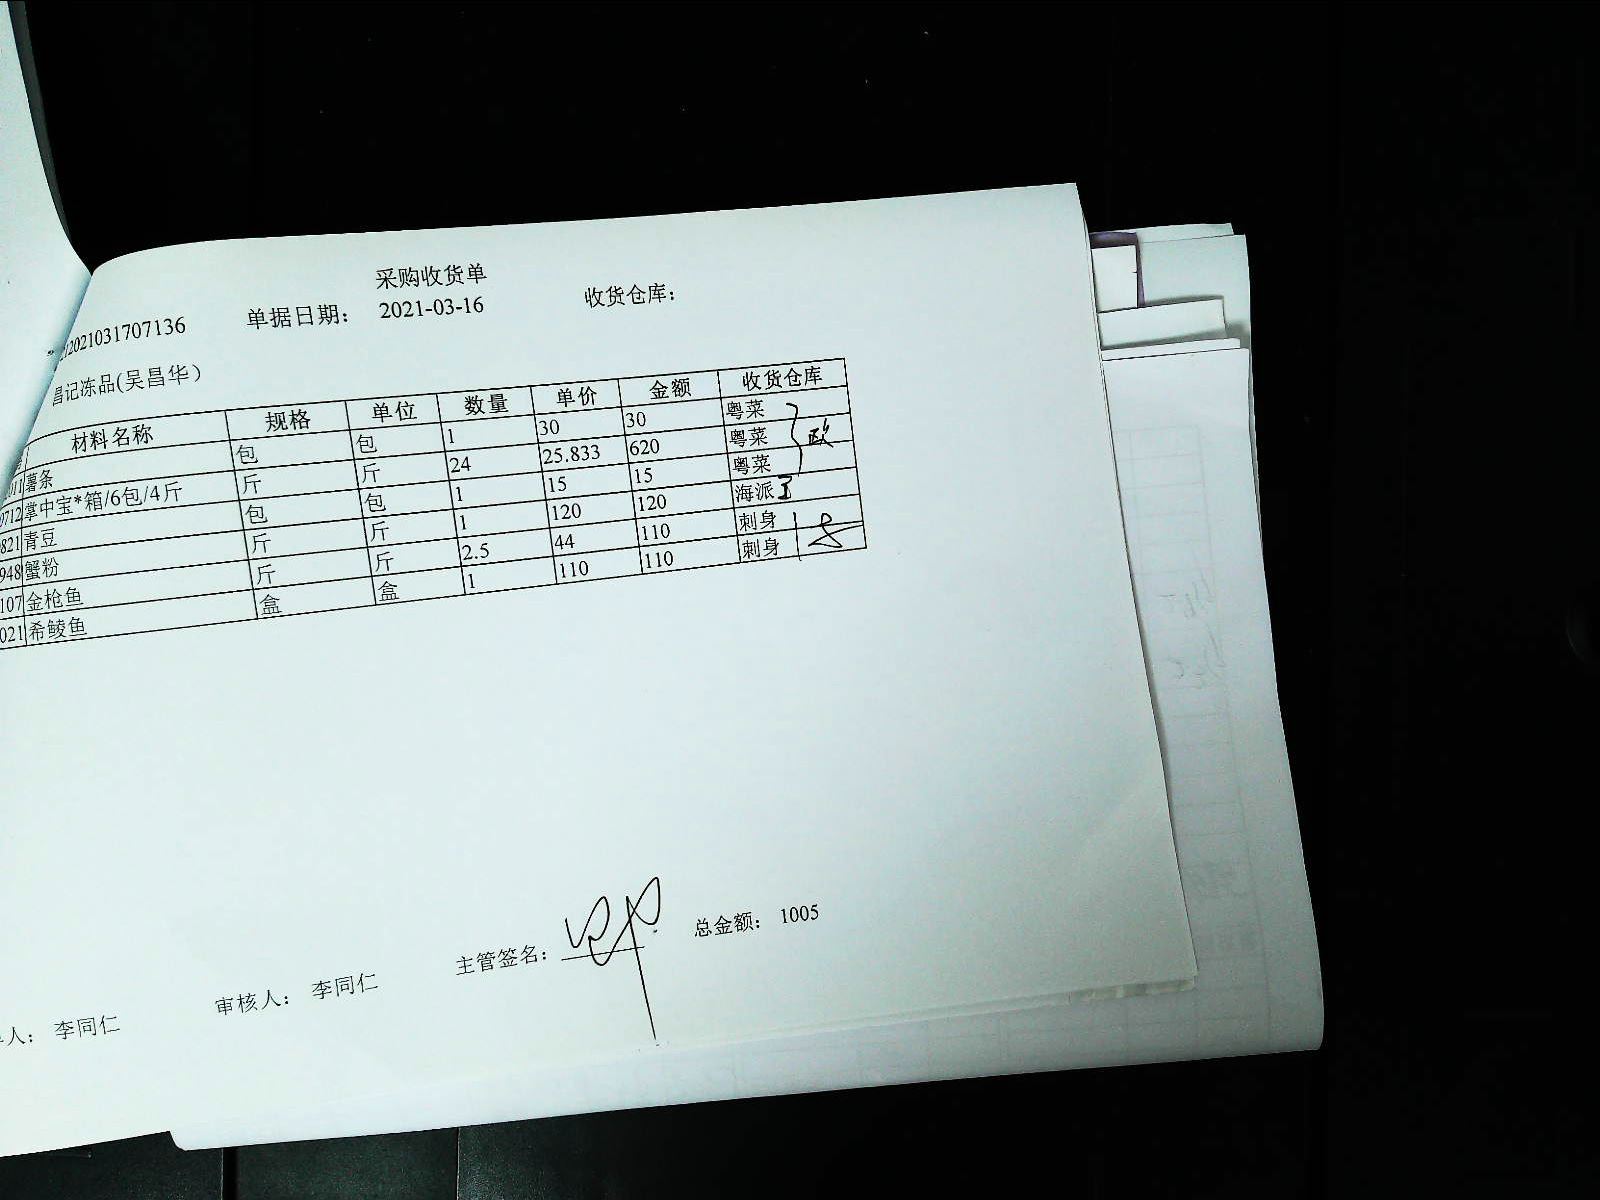 采购收货单
2021031707136 单据日期: 2021-03-16 收货仓库:
昌记冻品(吴昌华)
材料名称 规格 单位 数量 单价 金额 收货仓库
011 薯条 包 包 1 30 30 粤菜
0712 掌中宝*箱/6包/4斤 斤 斤 24 25.833 620 粤菜
821 青豆 包 包 1 15 15 粤菜
948 蟹粉 斤 斤 1 120 120 海派
107 金枪鱼 斤 斤 2.5 44 110 刺身
021 希鲮鱼 盒 盒 1 110 110 刺身
人: 李同仁 审核人: 李同仁 主管签名: 总金额: 1005